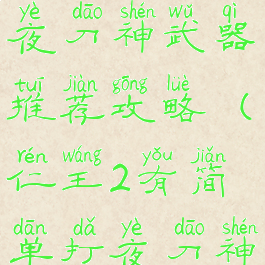 yè dāo shén wǔ qì
夜刀神武器
tuī jiàn gōng lüè
推荐攻略（
rén wáng yǒu jiǎn
仁王2有简
dān dǎ yè dāo shén
单打夜刀神